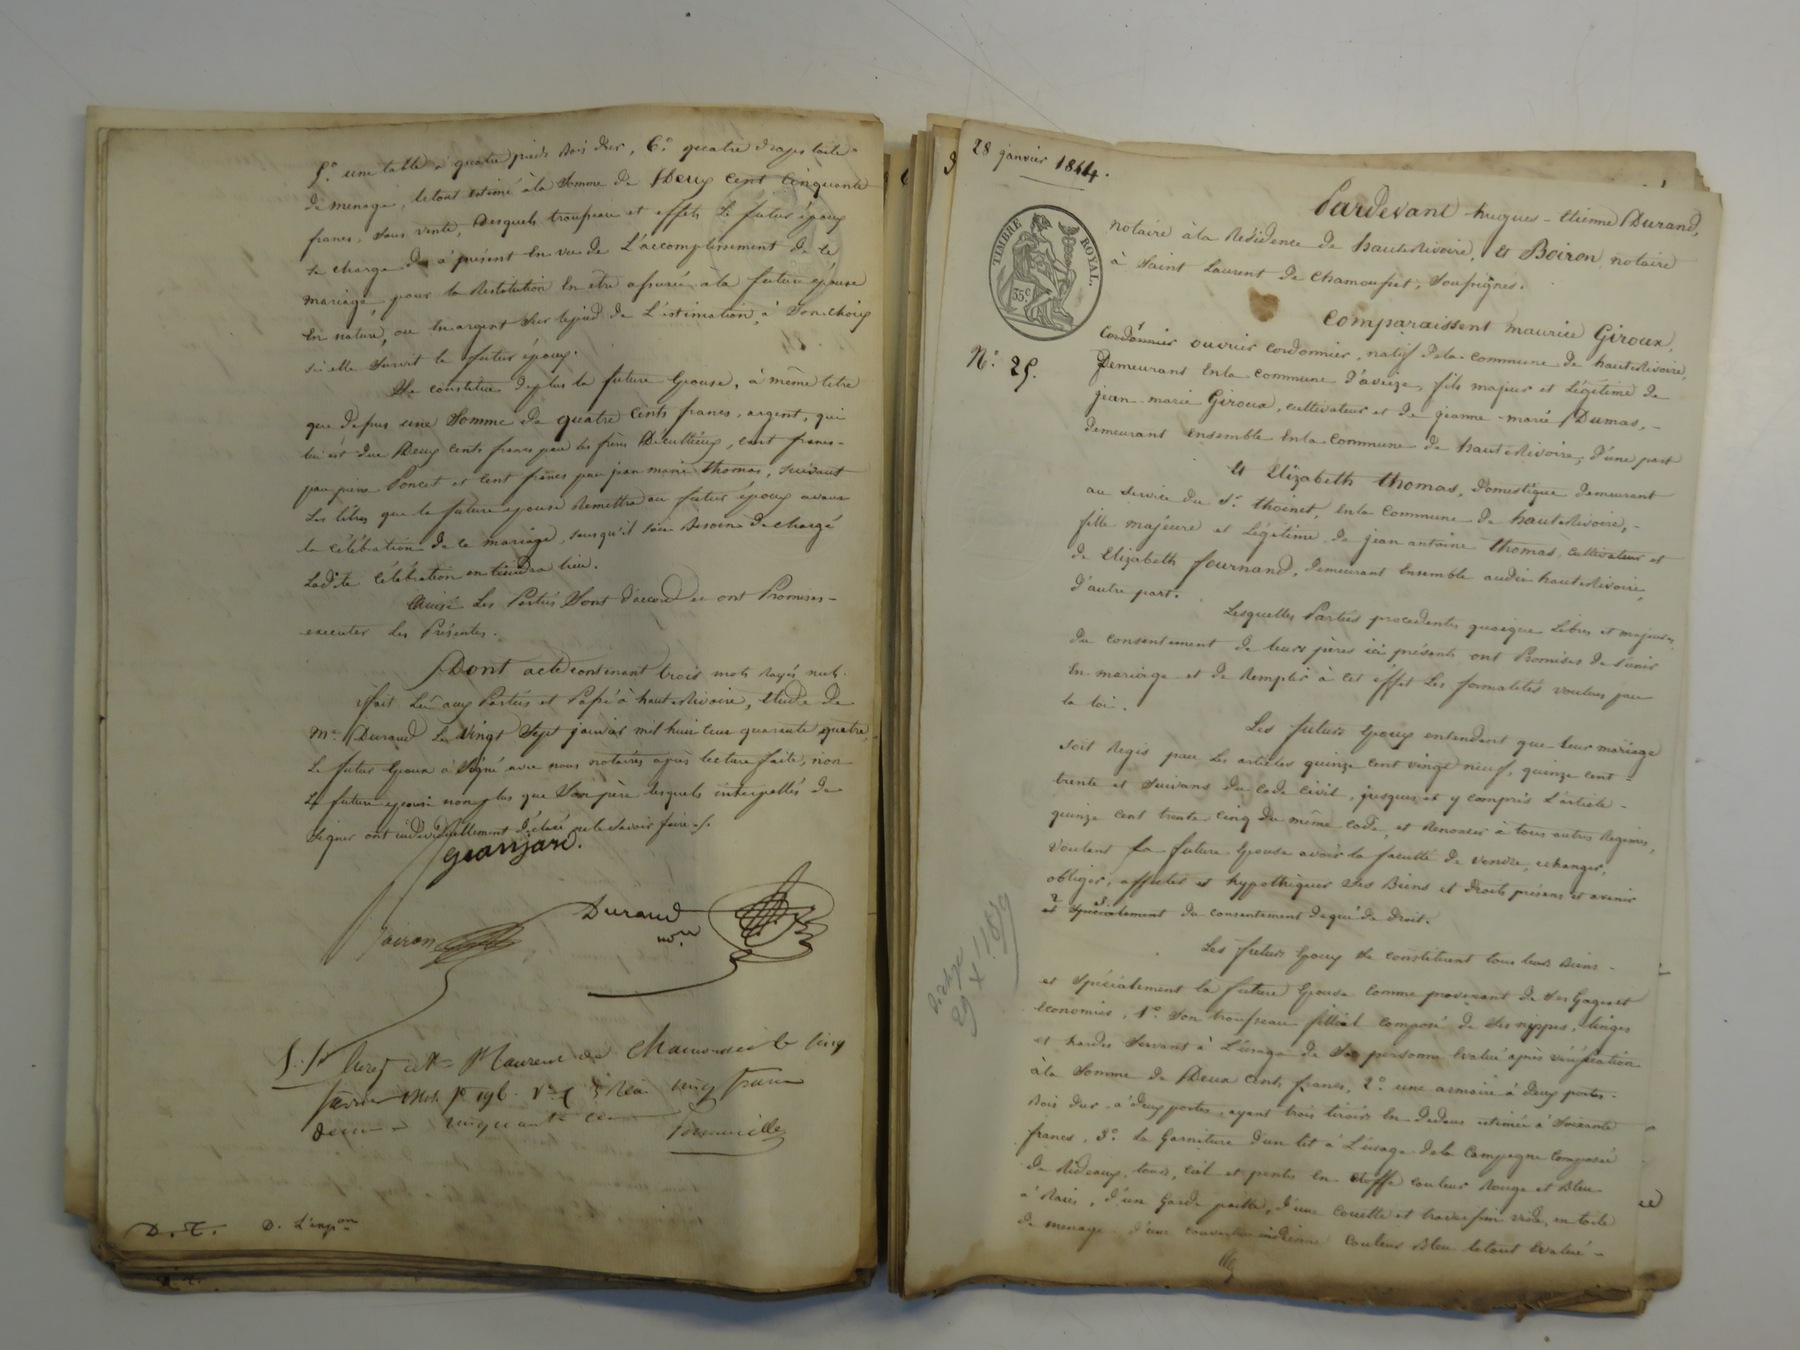 5.° une table à quatre pieds bois dur, 6.° quatre draps toile
de menage, le tout estimé à la somme de Deux cent cinquante
francs, sans vente, desquels trousseau et effets le futur époux
se charge dès à présent en vue de L'accomplissement de ce
mariage, pour la Restitution en être assurée à la future épouse
en nature, ou en argent sur le pied de L'estimation, à son choix
si elle survit le futur époux.
Se constitue de plus la future Epouse, à même titre
que dessus une somme de quatre cents francs, argent, qui
lui est due Deux cents francs par les frères, cent francs
par pierre Poncet et cent francs par jean marie thomas, suivant
les titres que la future epouse Remettra au futur époux avant
la célébration de ce mariage, sans qu'il soit Besoin de chargé
Ladite célébration en tiendra lieu.
Ainsi Les Parties sont d'accord et ont Promises
executer Les Présentes.
Dont acte contenant trois mots rayés nuls.
fait Lû aux Parties et Passé à haute Rivoire, Etude de
M.e Durand Le vingt sept janvier mil huit cent quarante quatre,
Le futur Epoux à signé avec nous notaires après lecture faite, non
La future epouse non plus que son père lesquels interpellés de
signer ont individuellement déclaré ne le savoir faire ./.
Granjard.
Durand
no.re
Boiron
St Laurent de Chamousset le cinq
fevrier 1844. f° 196. V° cinq francs
cinquante
D. T. D. L'exp.on
28 janvier 1844.
TIMBRE ROYAL.
35 c
N.° 25.
Pardevant hugues-Etienne Durand,
notaire à la Residence de haute Rivoire, Et Boiron notaire
à Saint Laurent de Chamousset, Soussignés.
Comparaissent maurice Giroux,
Cordonnier ouvrier cordonnier, natif de la commune de haute Rivoire,
Demeurant en la commune d'aveize, fils majeur et Légitime de
jean-marie Giroux, cultivateur et de jeanne-marie Dumas,
demeurant ensemble en la Commune de haute Rivoire, d'une part
Et Elizabeth thomas, Domestique demeurant
au service du S.r thoinet, en la Commune de haute Rivoire,
fille majeure et Légitime de jean antoine thomas, cultivateur et
de Elizabeth fournand, demeurant ensemble audit haute Rivoire,
d'autre part.
Lesquelles Parties procedantes quoique Libres et majeures
du consentement de leurs pères ici présents ont Promises de s'unir
en mariage et de Remplir à cet effet Les formalités voulues par
la loi.
Les futurs Epoux entendent que leur mariage
soit Regis par Les articles quinze cent vingt neuf, quinze cent
trente et suivans du code civil, jusques et y compris L'article
quinze cent trente cinq du même code, et Renoncer à tous autres Regimes,
voulant La future Epouse avoir la faculté de vendre, echanger,
obliger, affecter et hypothequer Ses Biens et droits présens et avenir
et Spécialement du consentement de qui de droit.
Les futurs Epoux se constituent tous leurs Biens
et Spécialement la future Epouse comme provenant de Ses Gages et
economies, 1.° Son trousseau filliel composé de Ses nippes, linges
et hardes Servant à L'usage de Sa personne Evalué après vérification
à la Somme de Deux cents francs, 2.° une armoire à deux portes
Bois dur à deux portes, ayant trois tiroirs en dedans estimée à Soixante
francs, 3.° La Garniture d'un lit à L'usage de la Campagne composée
de Rideaux, tours, ciel et pentes en étoffe couleur Rouge et Bleu
à Raies, d'un Garde paille, d'une couette et traversin vide, en toile
de menage, d'une couverture indienne couleur Bleu le tout Evalué